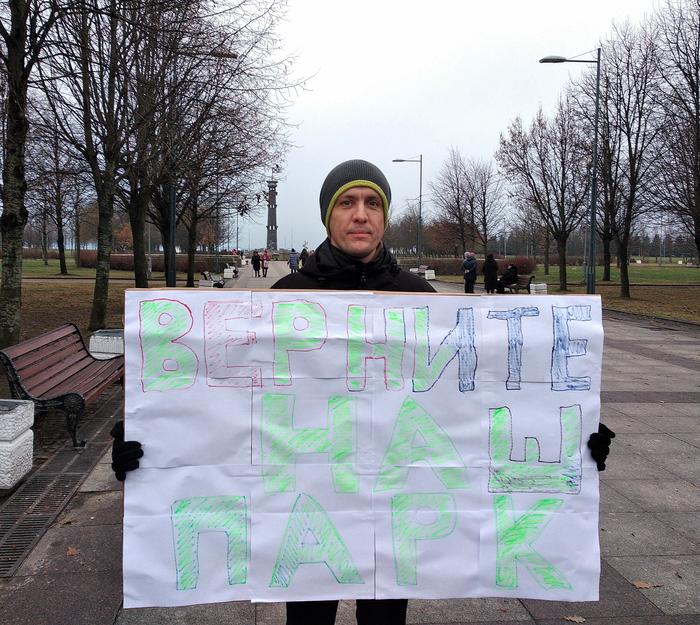 ВЕРНИТЕ
НАШ
ПАРК